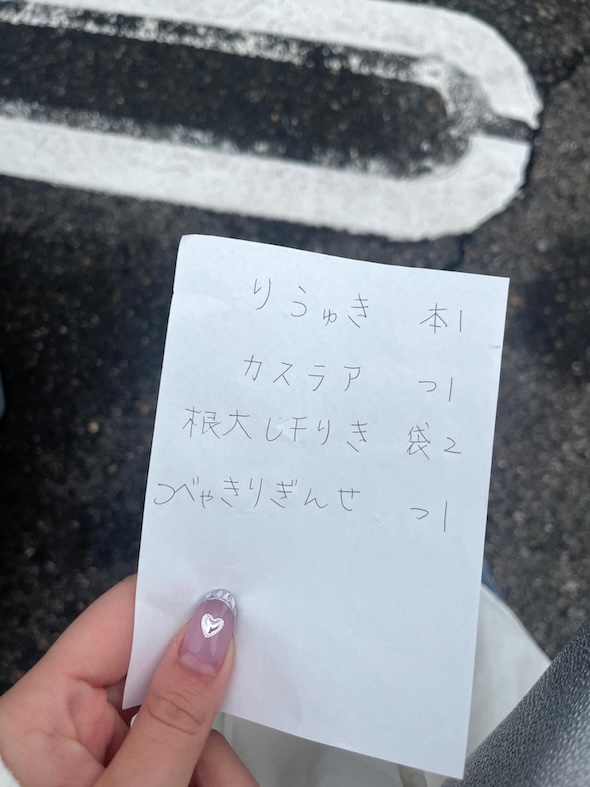 りうゅき 本1
カスラア つ1
根大し干りき 袋2
つべゃきりぎんせ つ1